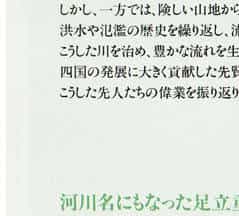 しかし、一方では、険しい山地から
洪水や氾濫の歴史を繰り返し、流
こうした川を治め、豊かな流れを生
四国の発展に大きく貢献した先賢
こうした先人たちの偉業を振り返り
河川名にもなった足立重